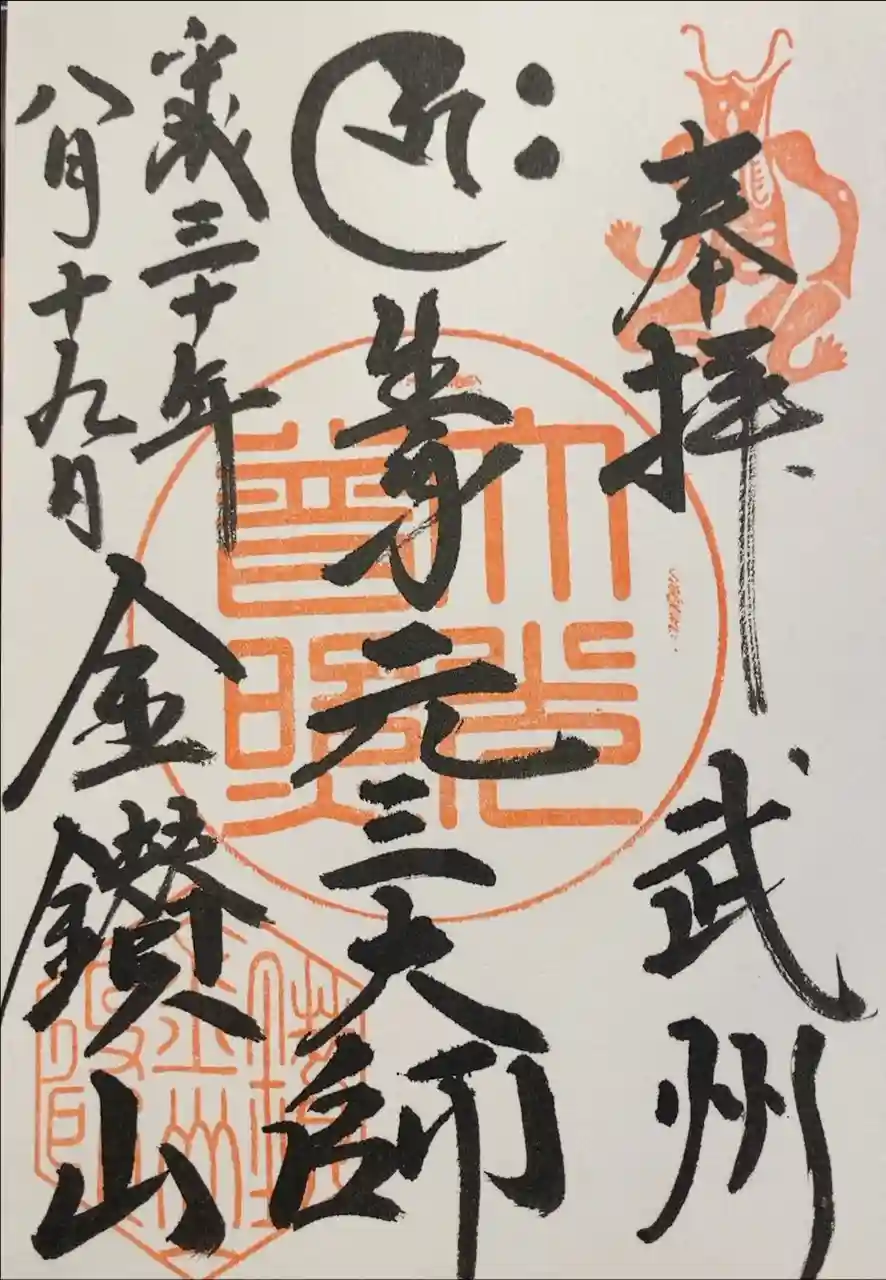 奉拝
武州
元三大師
平成三十年
八月十九日
金鑚山
大光
普照